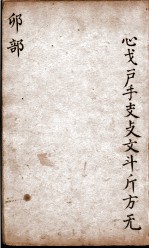 心戈戸手支攴文斗斤方无
卯部